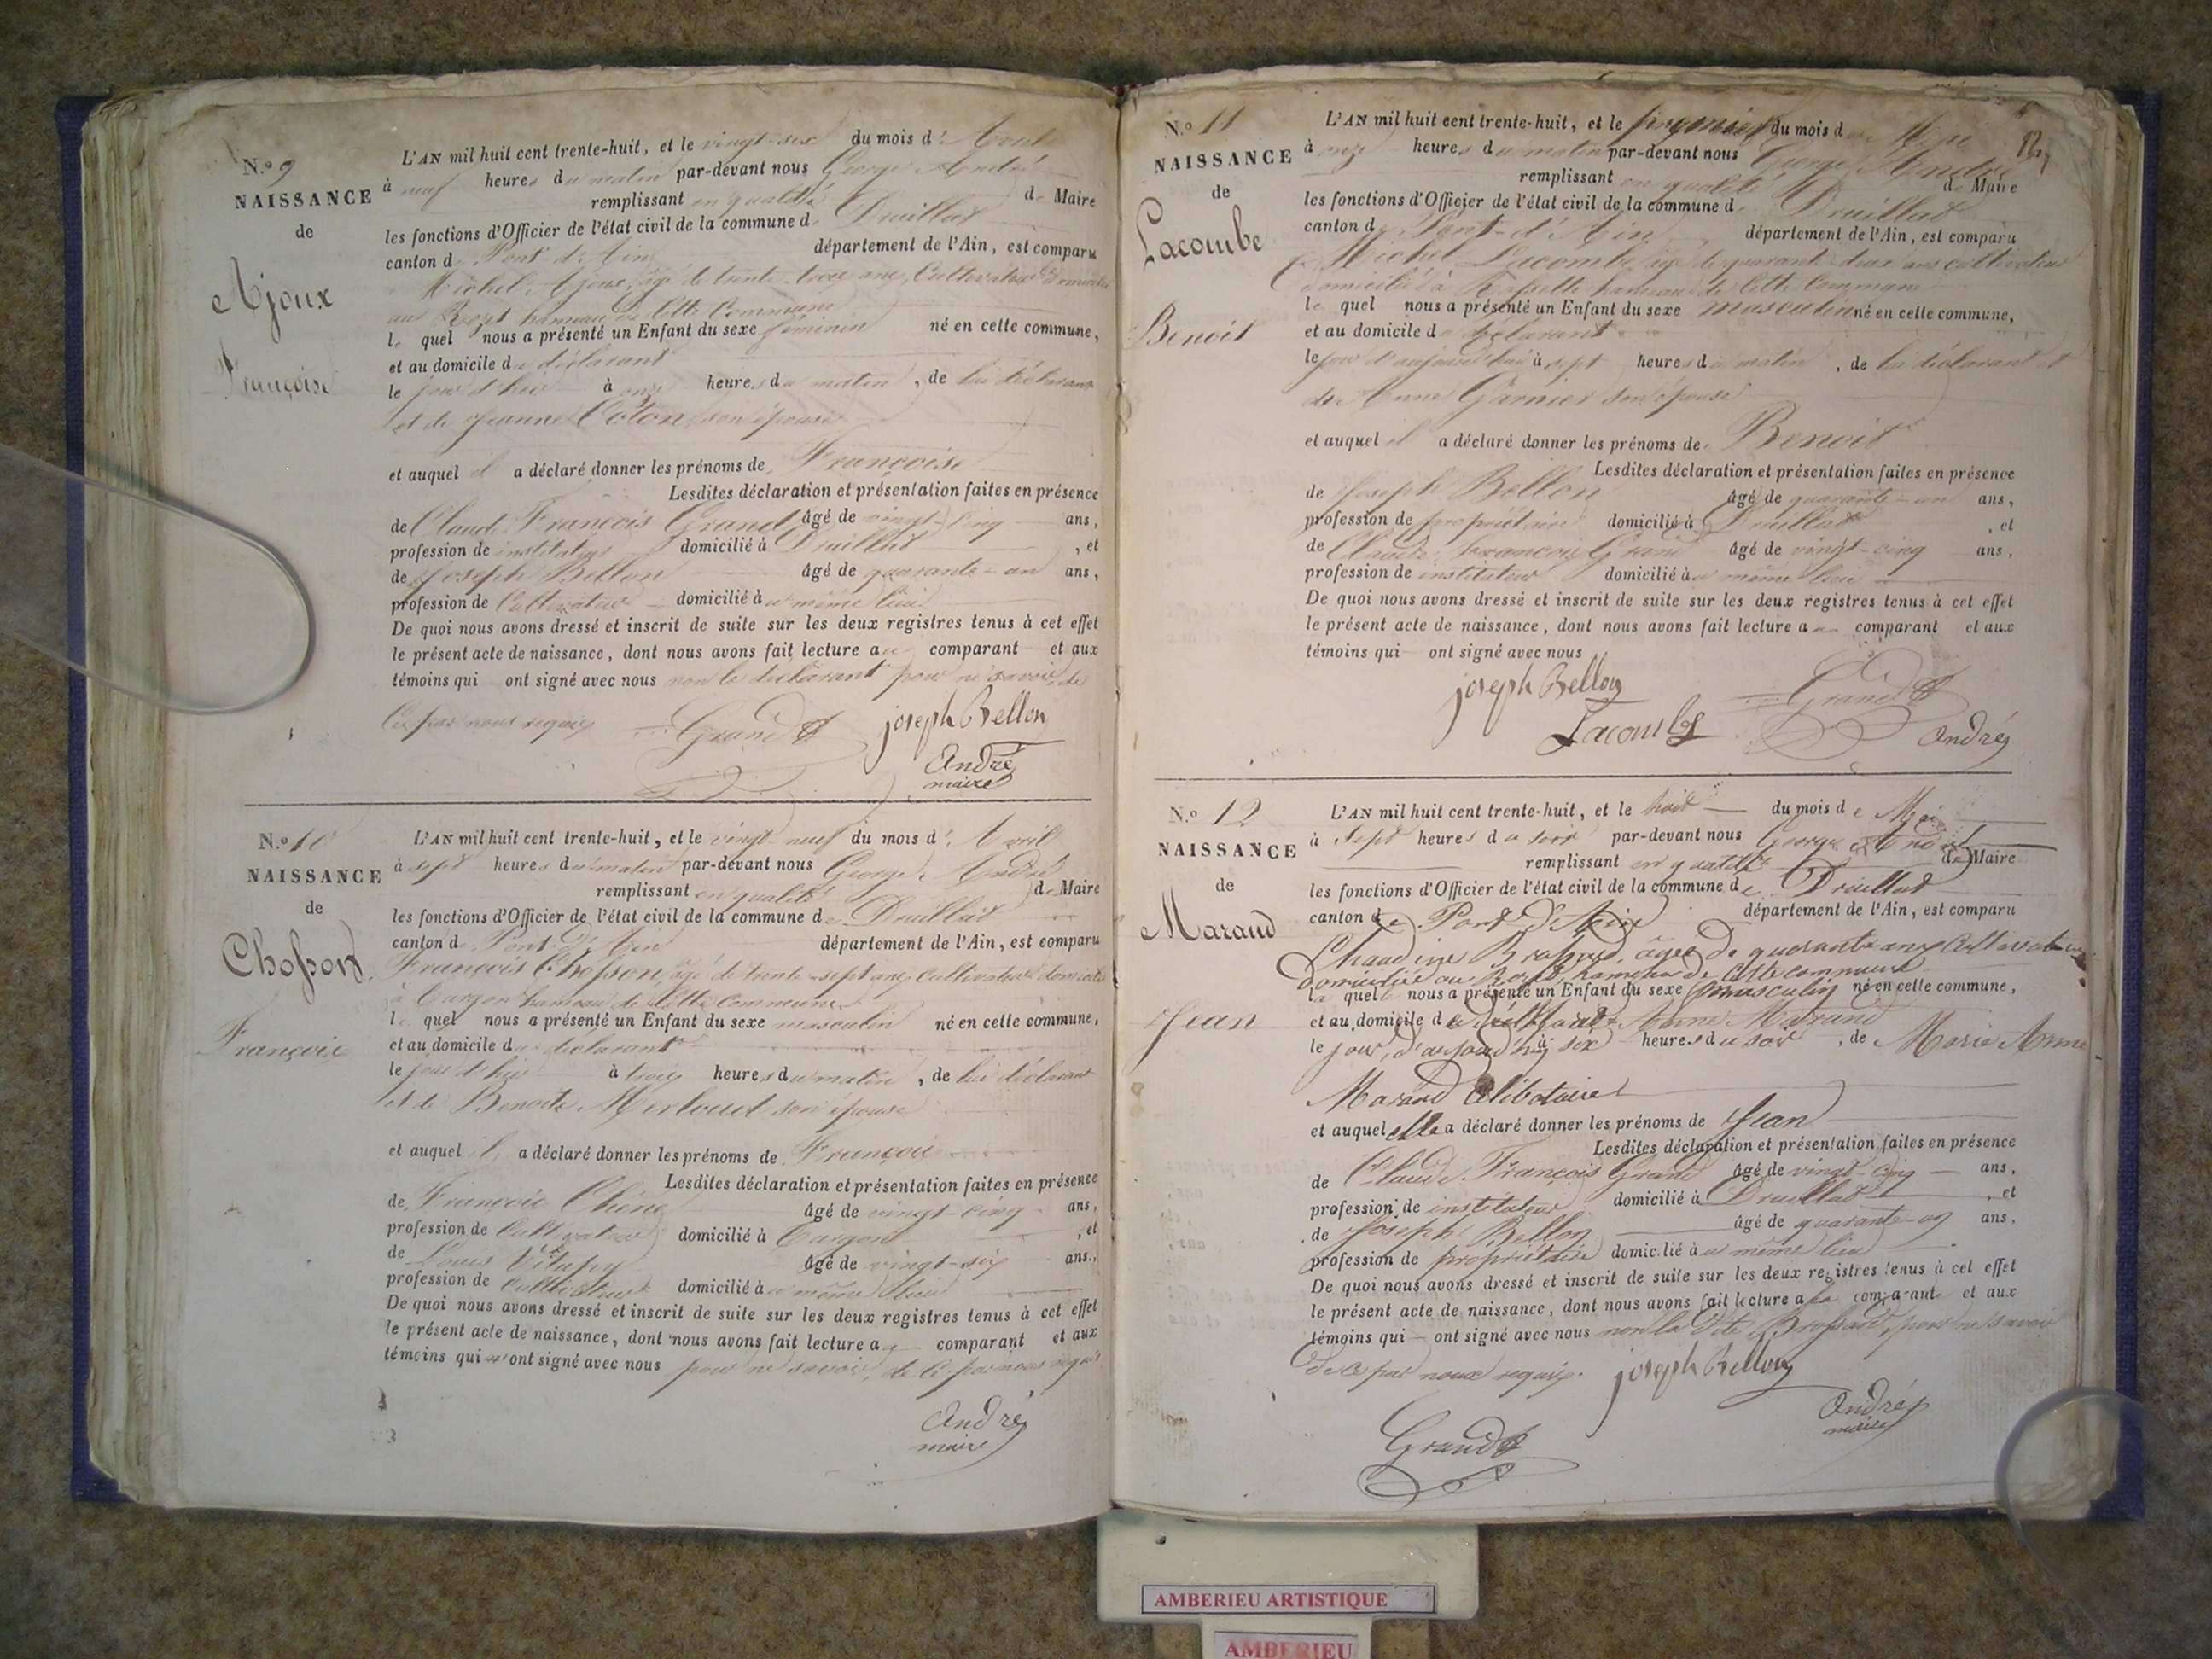 N.o 9
NAISSANCE
de
Ajoux
Françoise
L'AN mil huit cent trente-huit, et le vingt-six du mois d'Avril
à neuf heures du matin par-devant nous George André
remplissant en qualité de Maire
les fonctions d'Officier de l'état civil de la commune de Druillat
canton de Pont d'Ain département de l'Ain, est comparu
Michel Ajoux, âgé de trente-trois ans, Cultivateur domicilié
au hameau de cette Commune
lequel nous a présenté un Enfant du sexe féminin né en cette commune,
et au domicile du déclarant
le jour d'hier à onze heures du matin, de lui déclarant
et de Jeanne Coton son épouse
et auquel il a déclaré donner les prénoms de Françoise
Lesdites déclaration et présentation faites en présence
de Claude François Grand âgé de vingt-cinq ans,
profession de instituteur domicilié à Druillat, et
de Joseph Bellon âgé de quarante-un ans,
profession de Cultivateur domicilié au même lieu
De quoi nous avons dressé et inscrit de suite sur les deux registres tenus à cet effet
le présent acte de naissance, dont nous avons fait lecture au comparant et aux
témoins qui ont signé avec nous non le déclarant pour ne savoir, de
ce par nous requis
Grand
joseph Bellon
André
maire
N.o 10
NAISSANCE
de
Chosson
François
L'AN mil huit cent trente-huit, et le vingt-neuf du mois d'Avril
à sept heures du matin par-devant nous George André
remplissant en qualité de Maire
les fonctions d'Officier de l'état civil de la commune de Druillat
canton de Pont d'Ain département de l'Ain, est comparu
François Chosson, âgé de trente-sept ans, Cultivateur domicilié
à Turgon hameau de cette Commune
lequel nous a présenté un Enfant du sexe masculin né en cette commune,
et au domicile du déclarant
le jour d'hier à trois heures du matin, de lui déclarant
et de Benoite Merloud son épouse
et auquel il a déclaré donner les prénoms de François
Lesdites déclaration et présentation faites en présence
de François Chêne âgé de vingt-cinq ans,
profession de Cultivateur domicilié à Turgon, et
de Louis âgé de vingt-six ans,
profession de Cultivateur domicilié au même lieu
De quoi nous avons dressé et inscrit de suite sur les deux registres tenus à cet effet
le présent acte de naissance, dont nous avons fait lecture au comparant et aux
témoins qui n'ont signé avec nous pour ne savoir, de ce par nous requis
André
maire
N.o 11
NAISSANCE
de
Lacombe
Benoit
L'AN mil huit cent trente-huit, et le premier du mois de Mai
à onze heures du matin par-devant nous George André
remplissant en qualité de Maire
les fonctions d'Officier de l'état civil de la commune de Druillat
canton de Pont-d'Ain département de l'Ain, est comparu
Michel Lacombe âgé de quarante-deux ans cultivateur
domicilié à Rossette hameau de cette Commune
lequel nous a présenté un Enfant du sexe masculin né en cette commune,
et au domicile du déclarant
le jour d'aujourd'hui à sept heures du matin, de lui déclarant et
de Anne Garnier son épouse
et auquel il a déclaré donner les prénoms de Benoit
Lesdites déclaration et présentation faites en présence
de Joseph Bellon âgé de quarante-un ans,
profession de propriétaire domicilié à Druillat, et
de Claude François Grand âgé de vingt-cinq ans,
profession de instituteur domicilié au même lieu
De quoi nous avons dressé et inscrit de suite sur les deux registres tenus à cet effet
le présent acte de naissance, dont nous avons fait lecture au comparant et aux
témoins qui ont signé avec nous
joseph Bellon
Grand
Lacombe
André
N.o 12
NAISSANCE
de
Marand
Jean
L'AN mil huit cent trente-huit, et le huit du mois de Mai
à sept heures du soir par-devant nous George André
remplissant en qualité de Maire
les fonctions d'Officier de l'état civil de la commune de Druillat
canton de Pont d'Ain département de l'Ain, est comparu
Claudine Brossard, âgée de quarante ans Cultivatrice
domiciliée au hameau de cette commune
laquelle nous a présenté un Enfant du sexe masculin né en cette commune,
et au domicile de Anne Marand
le jour d'aujourd'hui à six heures du soir, de Marie Anne
Marand Célibataire
et auquel elle a déclaré donner les prénoms de Jean
Lesdites déclaration et présentation faites en présence
de Claude François Grand âgé de vingt-cinq ans,
profession de instituteur domicilié à Druillat, et
de Joseph Bellon âgé de quarante-un ans,
profession de propriétaire domicilié au même lieu
De quoi nous avons dressé et inscrit de suite sur les deux registres tenus à cet effet
le présent acte de naissance, dont nous avons fait lecture à la comparante et aux
témoins qui ont signé avec nous non la dite Brossard, pour ne savoir
de ce par nous requis.
joseph Bellon
André
maire
Grand
AMBERIEU ARTISTIQUE
AMBERIEU